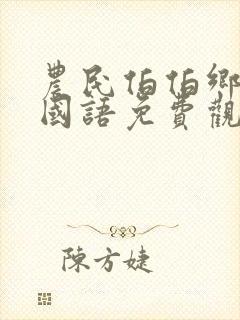 農民伯伯鄉
國語免費觀
陳方婕